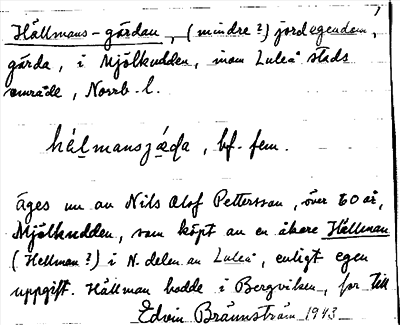 Hållmans-gärdan, (mindre?) jordegendom,
gärda, i Mjölkudden, inom Luleå stads
område, Norrb. l.
hålmansjäḍa, bf. fem.
Äges nu av Nils Olof Pettersson, över 60 år,
Mjölkudden, som köpt av en åkare Hållman
(Hellman?) i N. delen av Luleå, enligt egen
uppgift. Hållman hodde i Bergviken, for till
Edvin Brännström 1943